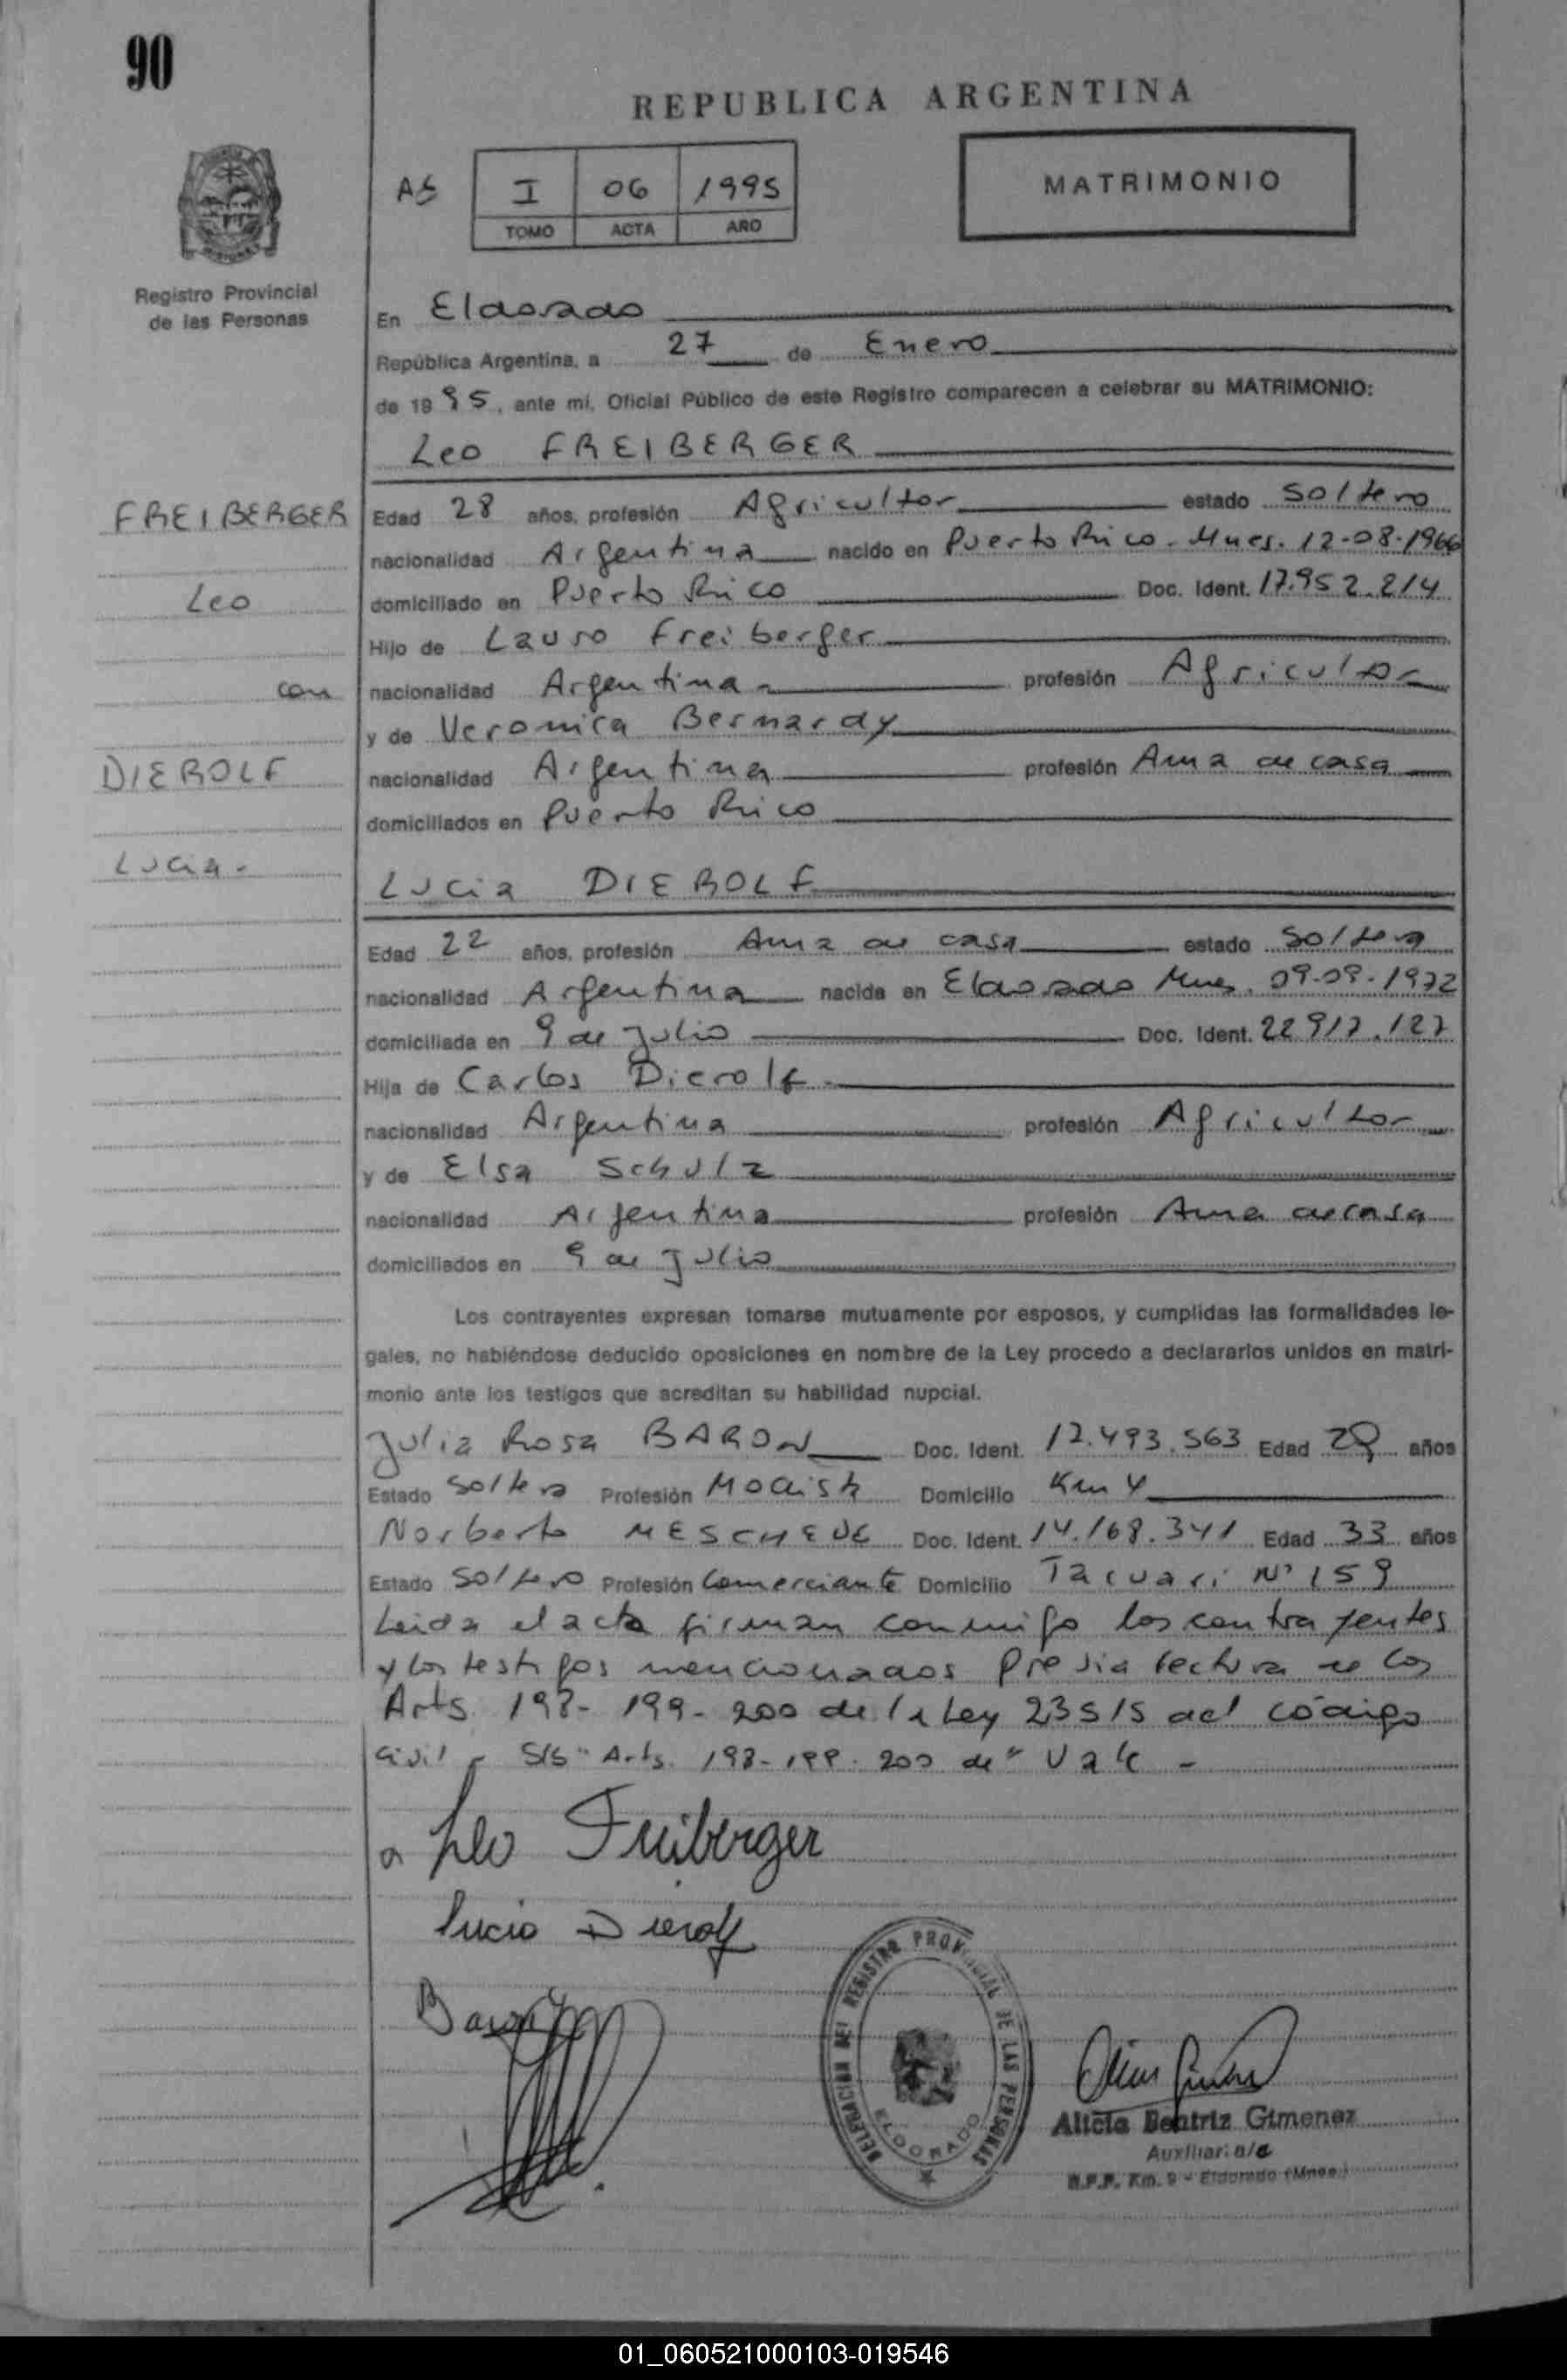 90
REPUBLICA ARGENTINA
AS I 06 1995
TOMO ACTA AÑO
MATRIMONIO
Registro Provincial
de las Personas
En Eldorado
República Argentina, a 27 de Enero
de 1995, ante mí, Oficial Público de este Registro comparecen a celebrar su MATRIMONIO:
Leo FREIBERGER
FREIBERGER
Leo
con
DIEROLF
Lucia.
Edad 28 años, profesión Agricultor estado Soltero
nacionalidad Argentina nacido en Puerto Rico. Mnes. 12-08-1966
domiciliado en Puerto Rico Doc. Ident. 17.952.214
Hijo de Lauro Freiberger
nacionalidad Argentina profesión Agricultor
y de Veronica Bernardy
nacionalidad Argentina profesión Ama de casa
domiciliados en Puerto Rico
Lucia DIEROLF
Edad 22 años, profesión Ama de casa estado Soltera
nacionalidad Argentina nacida en Eldorado Mnes. 09-09-1972
domiciliada en 9 de Julio Doc. Ident. 22.917.127
Hija de Carlos Dierolf.
nacionalidad Argentina profesión Agricultor
y de Elsa Schulz
nacionalidad Argentina profesión Ama de casa
domiciliados en 9 de Julio
Los contrayentes expresan tomarse mutuamente por esposos, y cumplidas las formalidades le-
gales, no habiéndose deducido oposiciones en nombre de la Ley procedo a declararlos unidos en matri-
monio ante los testigos que acreditan su habilidad nupcial.
Julia Rosa BARON Doc. Ident. 17.493.563 Edad 29 años
Estado Soltera Profesión Modista Domicilio Km 4
Norberto MESCHEDE Doc. Ident. 14.168.341 Edad 33 años
Estado Soltero Profesión Comerciante Domicilio Tacuari Nº 159
Leida el acta firman conmigo los contrayentes
y los testigos mencionados previa lectura de los
Arts. 198- 199- 200 de la Ley 23515 del código
Civil - S/b " Arts. 198-199-200 de " Vale -
Leo Freiberger
Lucia Dierolf
Baron
DELEGACION DEL REGISTRO PROVINCIAL DE LAS PERSONAS
ELDORADO
Alicia Beatriz Gimenez
Auxiliar a/c
R.P.P. Km. 9 - Eldorado (Mnes.)
01_060521000103-019546